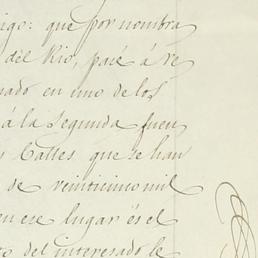 igo: que por nombra
del Rio, pasé á re
nado en uno de los
á la Segunda fuen
s Calles que se han
de veinticinco mil
en ese lugar és el
to del interesado le